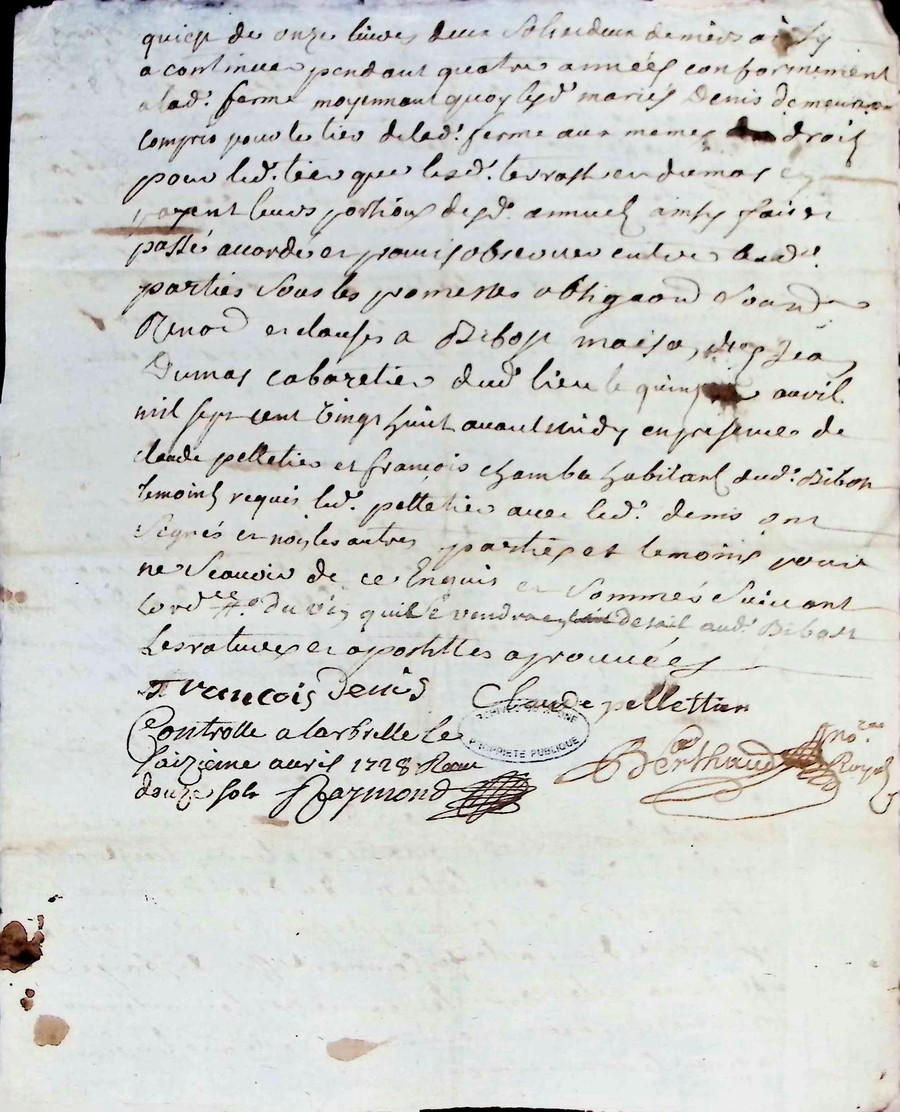 quiest de onze livres deux sols deux deniers ainsy
a continuer pendant quatre années conformement
a lad.t ferme moyennant quoy lesd.t mariés Denis demeuren
compris pour le tier delad.t ferme aux mesmes droits
pour led.t tier que lesd.t terrast et dumas en
payent leurs portions desd.t annuel ainsy fait et
passé accordé et promis observer entre lesd.t
parties sous les promesses obligaons soand
Renond et clauses a Bibost maison de Jean
Dumas cabaretier dud.t lieu le quinze avril
mil sept cent vingt huit avant midy en presence de
claude pelletier et françois chamba habitant dud.t Bibost
temoins requis led.t pelletier avec led.t denis ont
signés et non les autres parties et temoins pour
ne scavoir de ce Enquis et sommés suivant
lord.ce du vin quil vendra detail aud.t Bibost
Les ratures et apostilles aprouvées
françois denis Claude pellettier
Controllé a larbrelle le
saizieme avril 1728 Receu
douze sols Raymond
Berthaud no.re Royal
PROPRIETE PUBLIQUE